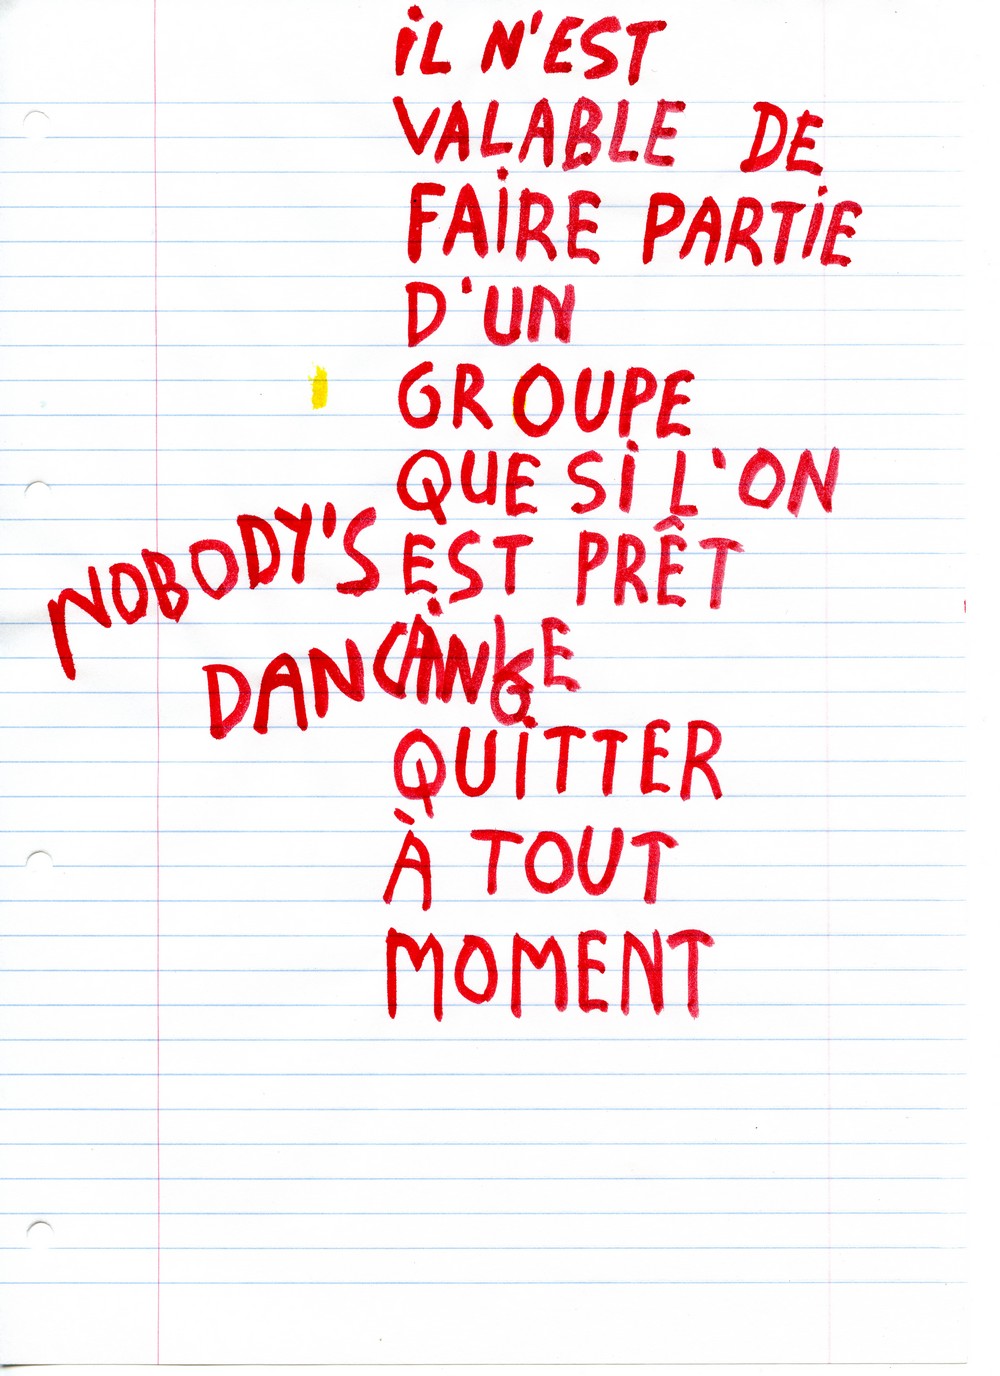 iL N'EST
VALABLE DE
FAiRE PARTiE
D'UN
GROUPE
QUE Si L'ON
EST PRÊT
À LE
QUiTTER
À TOUT
MOMENT
NOBODY'S
DANCiNG